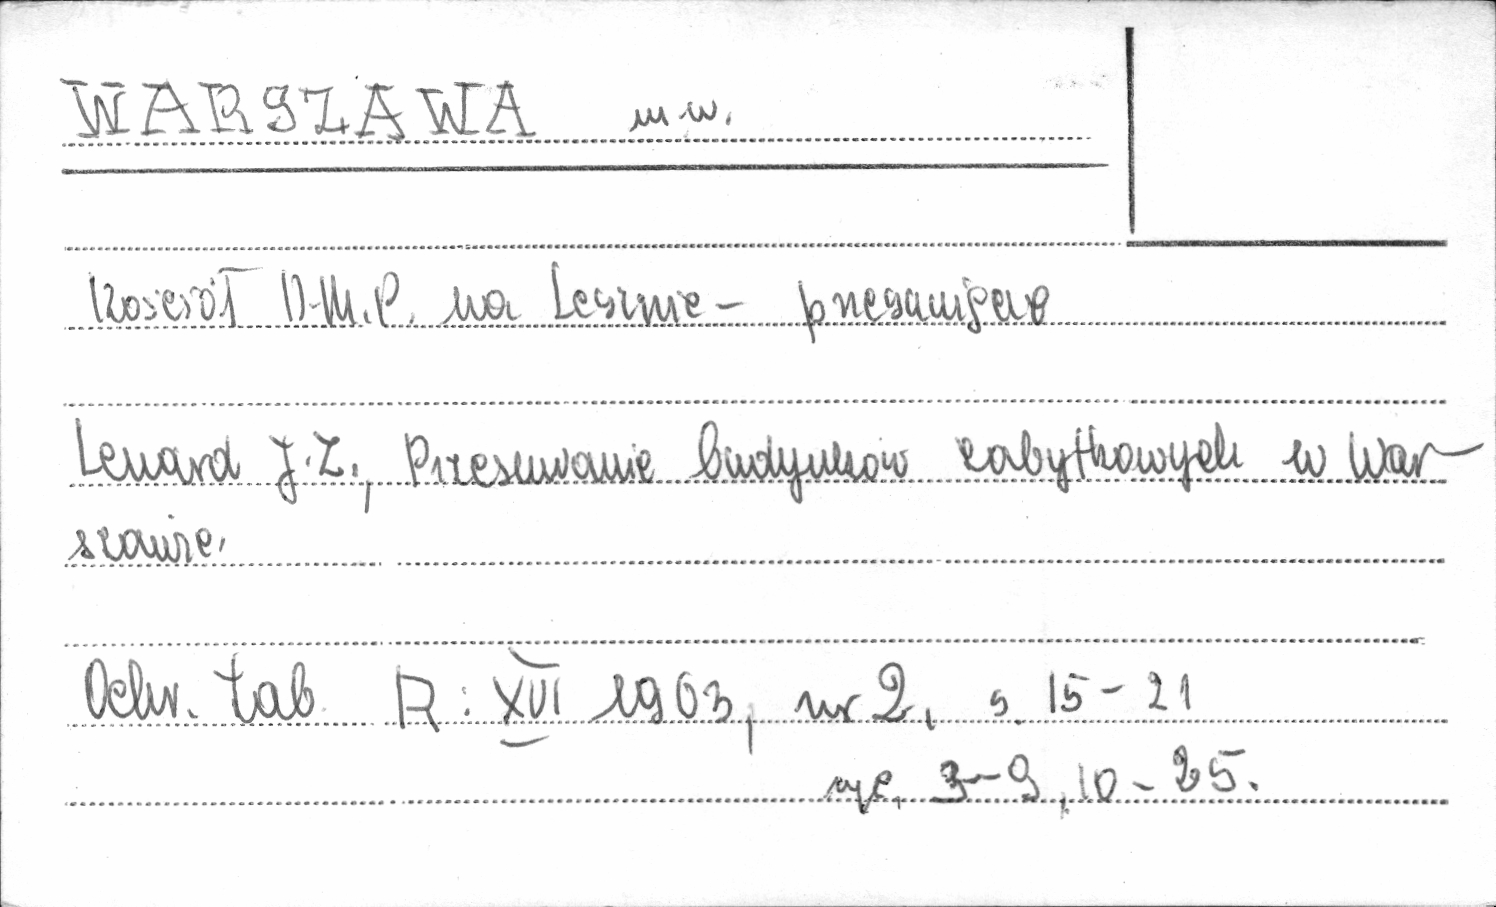 WARSZAWA m w.
Kościół N.M.P. na Lesznie – przesunięcie
Lenard J.Z., Przesuwanie budynków zabytkowych w War-
szawie.
Ochr. Zab. R: XVI 1963, nr 2, s. 15–21
ryc. 3–9, 10–25.